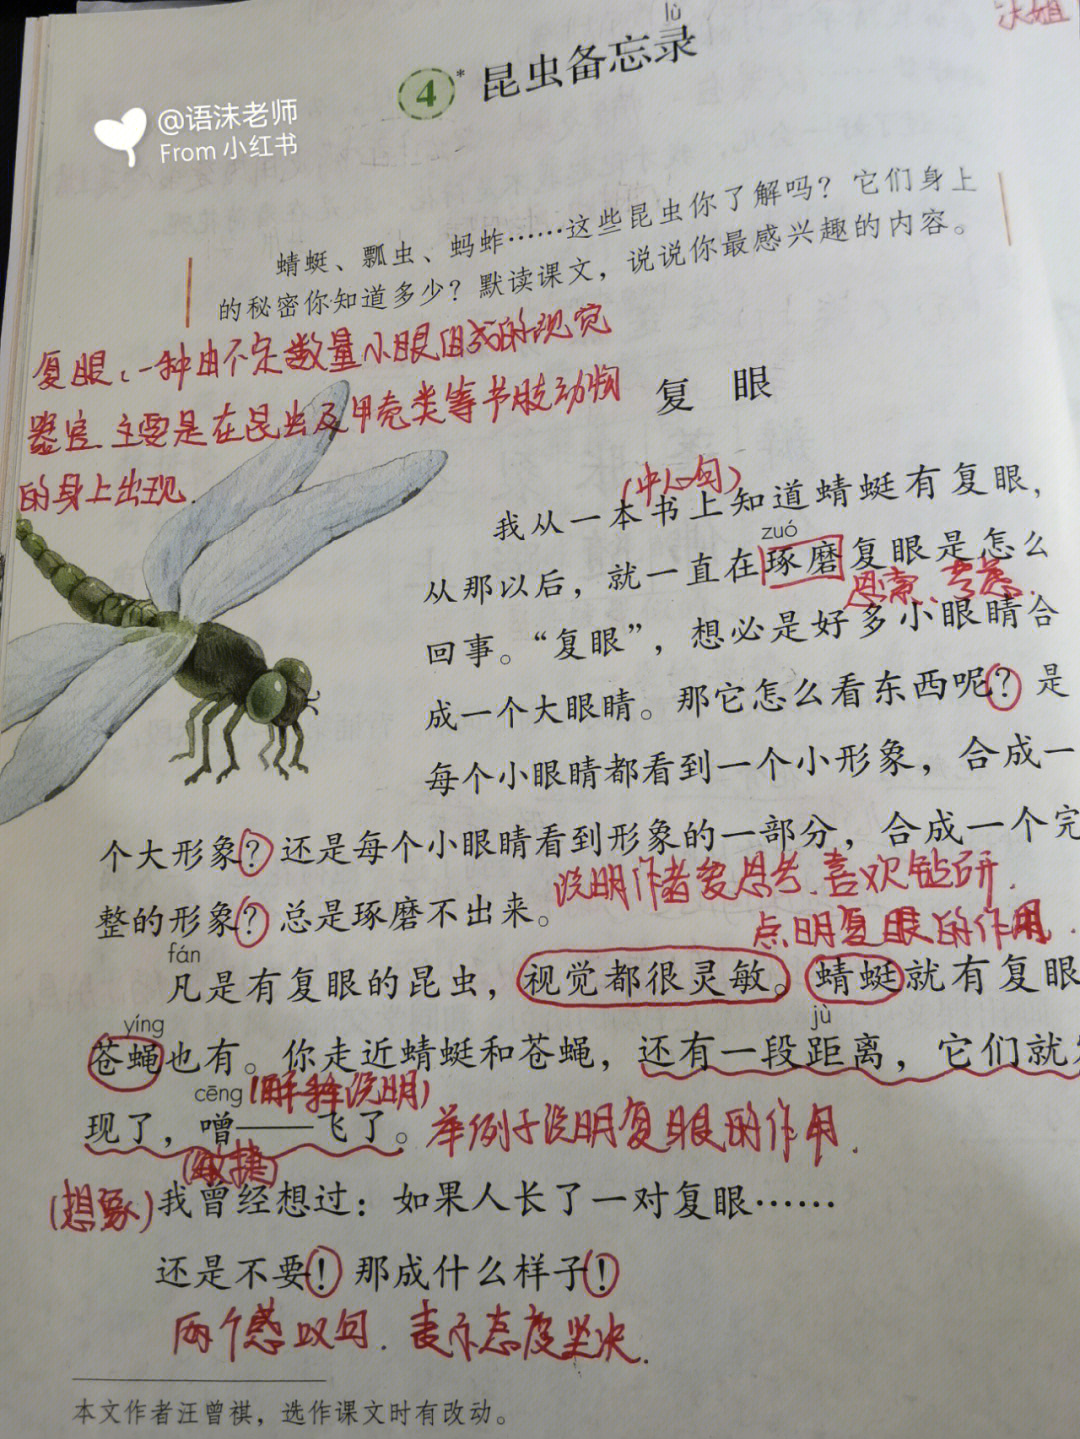 冰姐
lù
4* 昆虫备忘录
@语沫老师
From 小红书
蜻蜓、瓢虫、蚂蚱……这些昆虫你了解吗？它们身上
的秘密你知道多少？默读课文，说说你最感兴趣的内容。
复眼、一种由不定数量小眼组成的视觉
器官.主要是在昆虫及甲壳类等节肢动物
的身上出现.
复 眼
(中心句)
我从一本书上知道蜻蜓有复眼，
zuó
从那以后，就一直在琢磨复眼是怎么
思索、考虑.
回事。“复眼”，想必是好多小眼睛合
成一个大眼睛。那它怎么看东西呢？是
每个小眼睛都看到一个小形象，合成一
个大形象？还是每个小眼睛看到形象的一部分，合成一个完
说明作者爱思考.喜欢钻研.
整的形象？总是琢磨不出来。
点明复眼的作用.
fán
凡是有复眼的昆虫，视觉都很灵敏。蜻蜓就有复眼
yíng jù
苍蝇也有。你走近蜻蜓和苍蝇，还有一段距离，它们就发
cēng (解释说明)
现了，噌——飞了。 举例子说明复眼的作用.
(敏捷)
(想象)我曾经想过：如果人长了一对复眼……
还是不要！那成什么样子！
两个感叹句.表示态度坚决.
本文作者汪曾祺，选作课文时有改动。